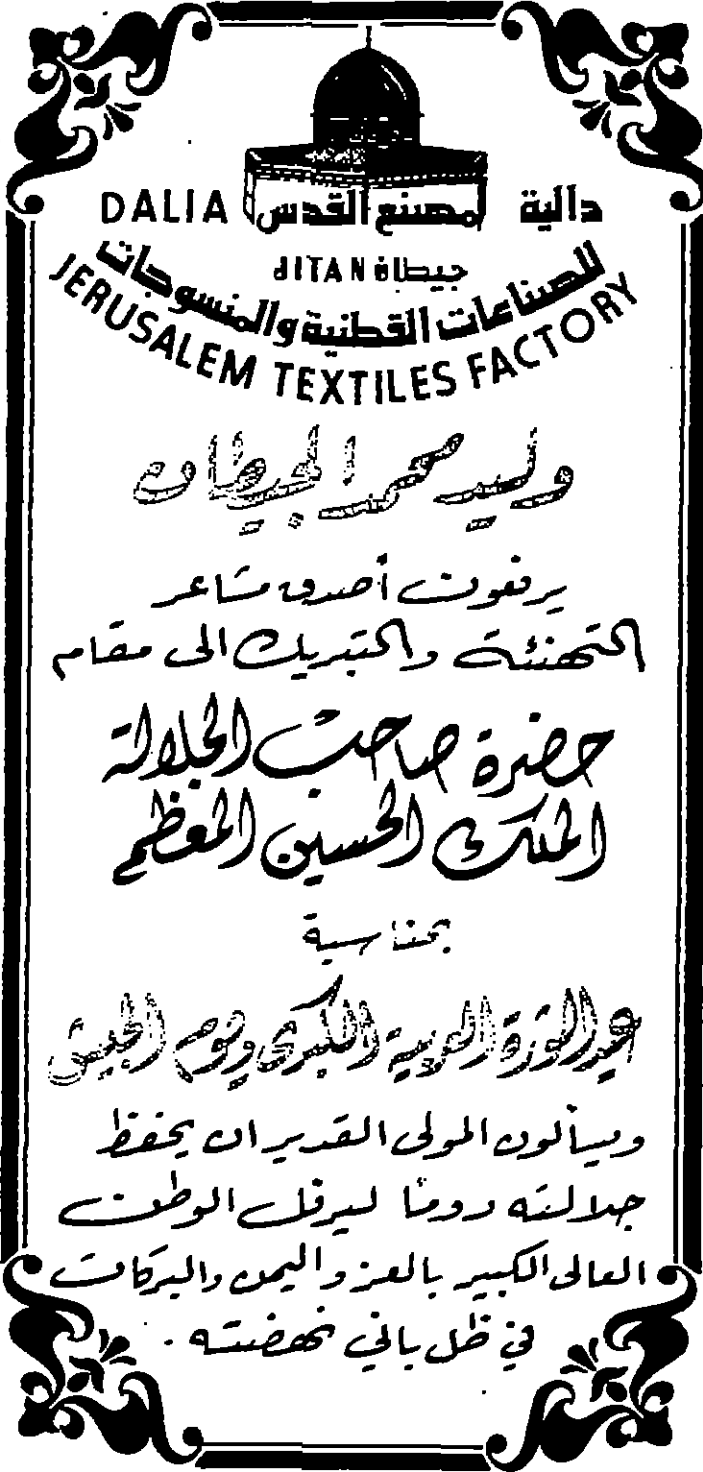 DALIA مصنع القدس دالية
JITAN جيطان
للصناعات القطنية والمنسوجات
JERUSALEM TEXTILES FACTORY
وليد محمد الجيطان
يرفعون أصدق مشاعر
التهنئة والتبريك الى مقام
حضرة صاحب الجلالة
الملك الحسين المعظم
بمناسبة
عيد الثورة العربية الكبرى ويوم الجيش
ويسألون المولى القدير ان يحفظ
جلالته دوماً ليرفل الوطن
الغالي الكبير بالعز واليمن والبركات
في ظل باني نهضته .